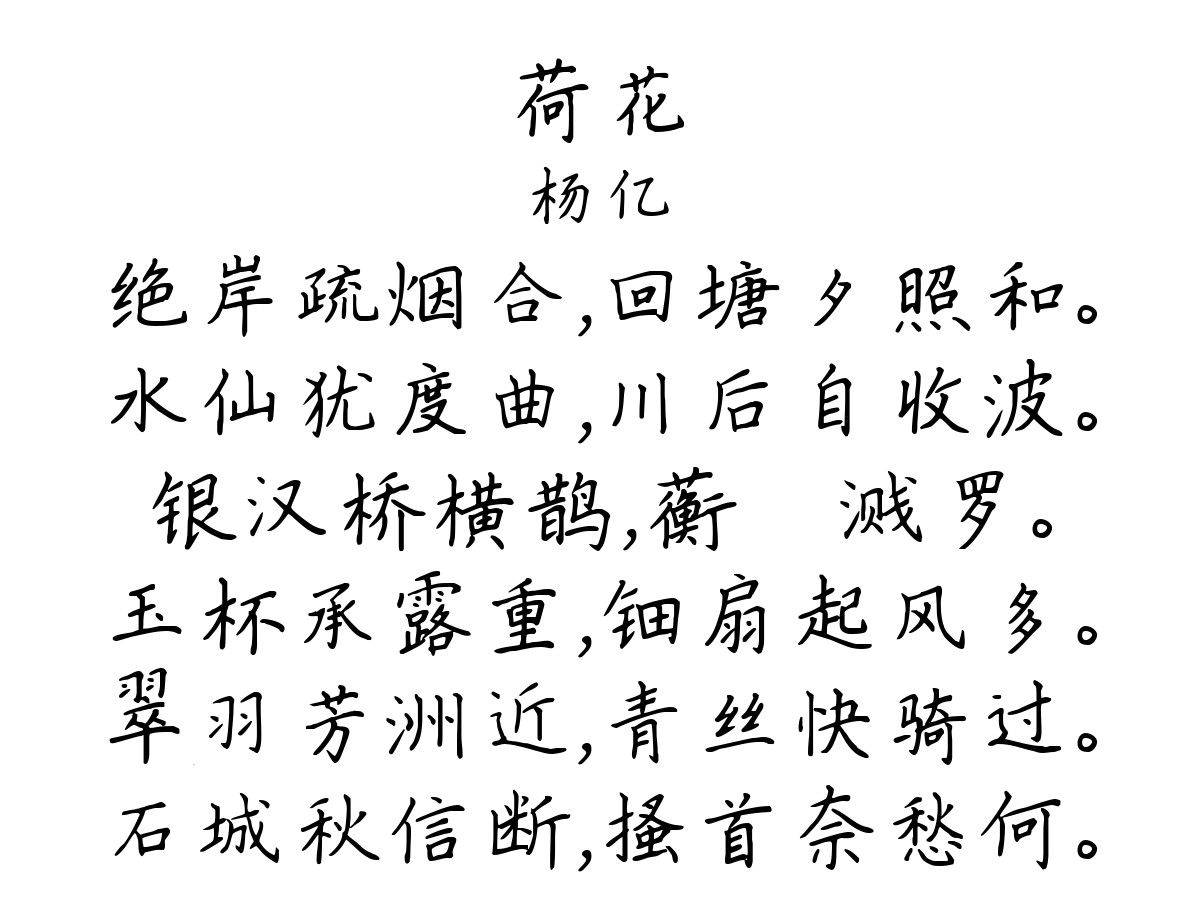 荷花
杨亿
绝岸疏烟合,回塘夕照和。
水仙犹度曲,川后自收波。
银汉桥横鹊,蘅 溅罗。
玉杯承露重,钿扇起风多。
翠羽芳洲近,青丝快骑过。
石城秋信断,搔首奈愁何。